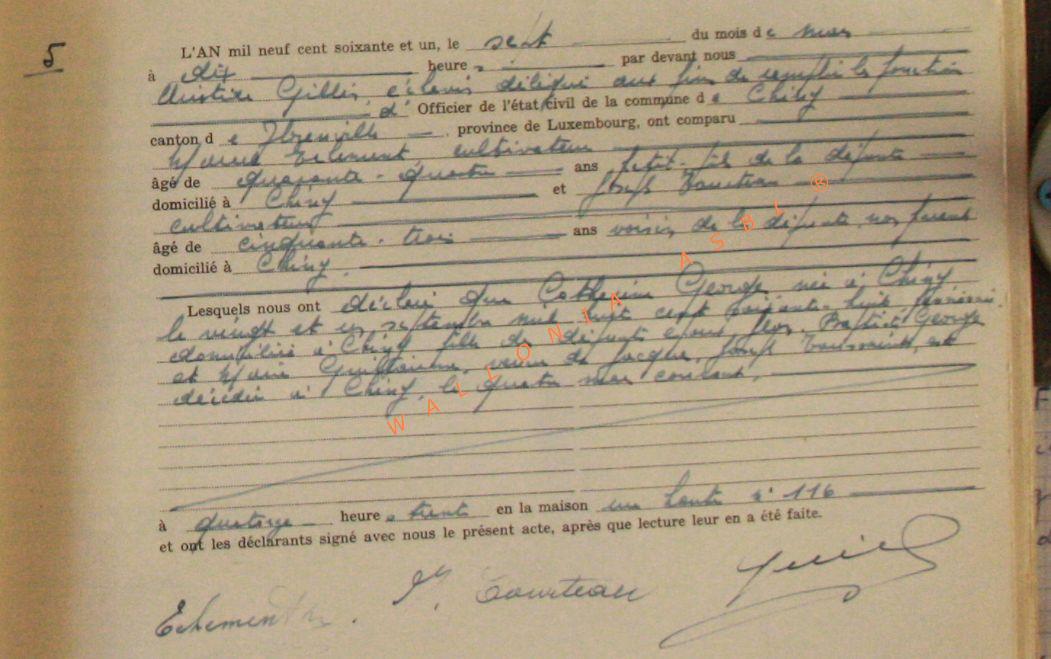 5
L'AN mil neuf cent soixante et un, le sept du mois de mars
à dix heures par devant nous
Gillis, délégué aux fins de remplir les fonctions
d' Officier de l'état civil de la commune de Chiny
canton de province de Luxembourg, ont comparu
cultivateur
âgé de quarante-quatre ans petit-fils de la défunte
domicilié à Chiny et Joseph
cultivateur
âgé de cinquante-trois ans voisin de la défunte, non parent
domicilié à Chiny.
Lesquels nous ont déclaré que Catherine George née à Chiny
le vingt et un septembre mil huit cent soixante-huit
domiciliée à Chiny fille de défunts époux Baptiste George
et Marie veuve de Jacques Joseph est
décédée à Chiny, le quatre mars courant,
à quatorze heures trente en la maison n° 116
et ont les déclarants signé avec nous le présent acte, après que lecture leur en a été faite.
WALLONIA ASBL ®